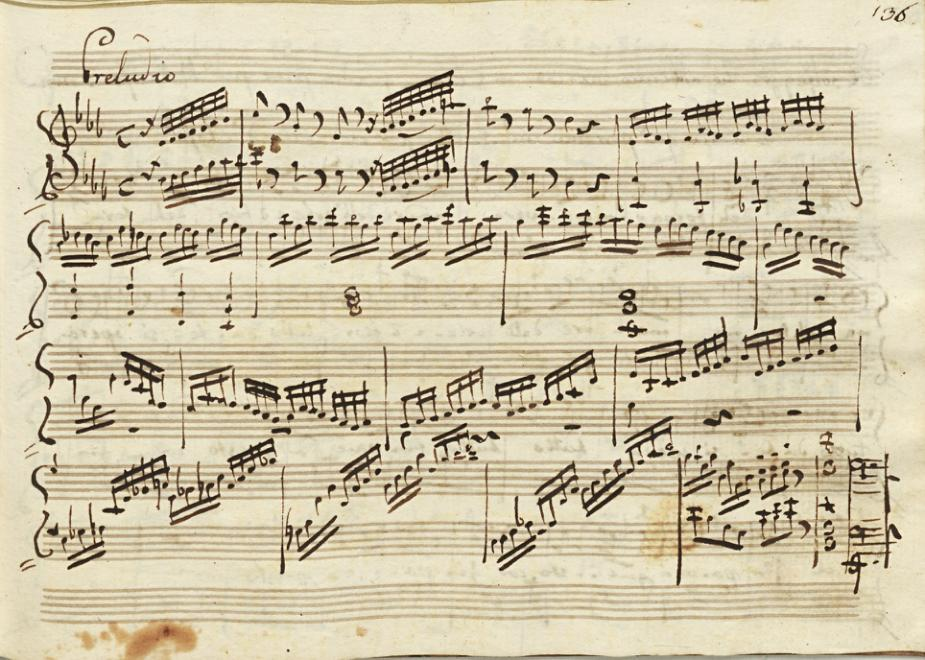 136
Preludio